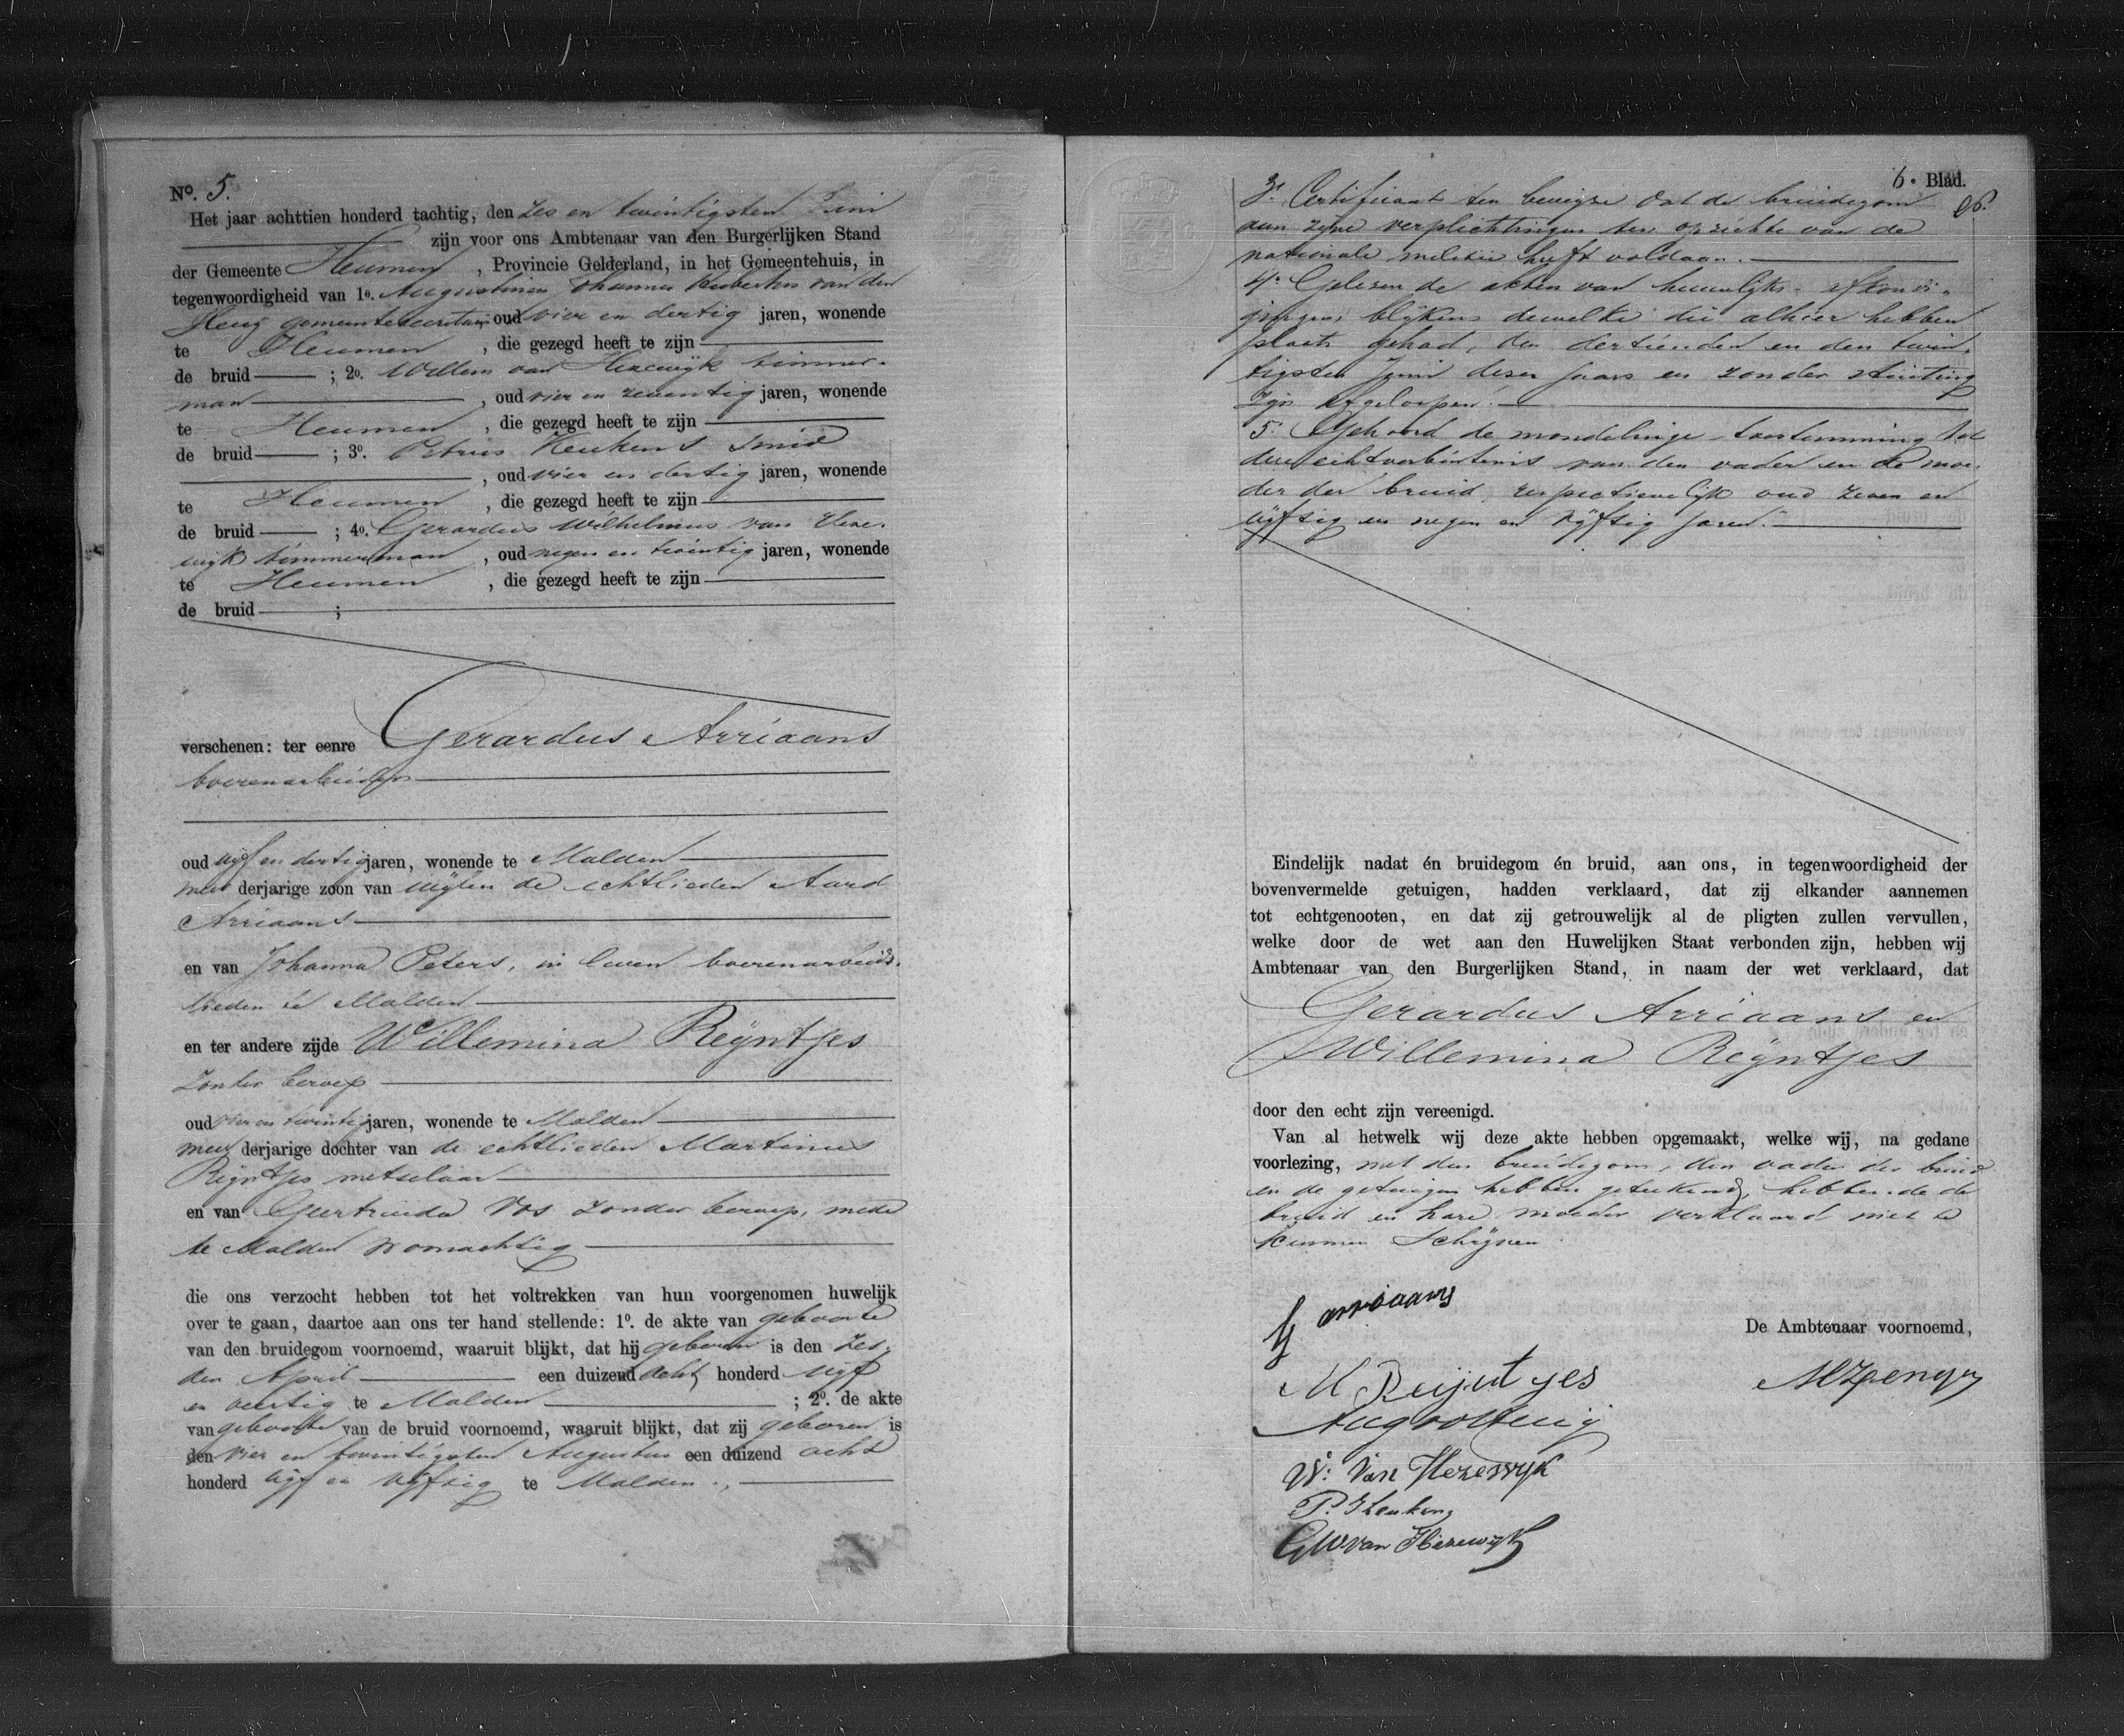 No. 5.
Het jaar achttien honderd tachtig, den zes en twintigsten Juni
zijn voor ons Ambtenaar van den Burgerlijken Stand
der Gemeente Heumen, Provincie Gelderland, in het Gemeentehuis, in
tegenwoordigheid van 1o. Augustinus Johannes Hubertus van den
Heuy gemeentesecretaris oud vier en dertig jaren, wonende
te Heumen, die gezegd heeft te zijn
de bruid ; 2o. Willem van Hezewijk timmer-
man, oud vier en zeventig jaren, wonende
te Heumen, die gezegd heeft te zijn
de bruid ; 3o. Petrus Heukens smid
, oud vier en dertig jaren, wonende
te Heumen, die gezegd heeft te zijn
de bruid ; 4o. Gerardus Wilhelmus van Heze-
wijk timmerman, oud negen en twintig jaren, wonende
te Heumen, die gezegd heeft te zijn
de bruid ;
verschenen: ter eenre Gerardus Arriaans
boerenarbeider
oud vijf en dertig jaren, wonende te Malden
meerderjarige zoon van wijlen de echtlieden Aard
Arriaans
en van Johanna Peters, in leven boerenarbeids-
lieden te Malden
en ter andere zijde Willemina Reyntjes
zonder beroep
oud vier en twintig jaren, wonende te Malden
meerderjarige dochter van de echtlieden Martinus
Reyntjes metselaar
en van Geertruida Vos zonder beroep, mede
te Malden woonachtig
die ons verzocht hebben tot het voltrekken van hun voorgenomen huwelijk
over te gaan, daartoe aan ons ter hand stellende: 1o. de akte van geboorte
van den bruidegom voornoemd, waaruit blijkt, dat hij geboren is den zes-
den April een duizend acht honderd vijf
en veertig te Malden ; 2o. de akte
van geboorte van de bruid voornoemd, waaruit blijkt, dat zij geboren is
den vier en twintigsten Augustus een duizend acht
honderd vijf en vijftig te Malden.
6. Blad.
3o. Certificaat ten bewijze dat de bruidegom
aan zijne verplichtingen ten opzichte van de
nationale militie heeft voldaan.
4o. Gelezen de akten van huwelijks-afkondi-
gingen, blijkens dewelke die alhier hebben
plaats gehad, den dertienden en den twin-
tigsten Juni dezer jaars en zonder stuiting
zijn afgeloopen.
5o. Gehoord de mondelinge toestemming tot
deze echtverbintenis van den vader en de moe-
der der bruid, respectievelijk oud zeven en
vijftig en negen en vijftig jaren.
Eindelijk nadat én bruidegom én bruid, aan ons, in tegenwoordigheid der
bovenvermelde getuigen, hadden verklaard, dat zij elkander aannemen
tot echtgenooten, en dat zij getrouwelijk al de pligten zullen vervullen,
welke door de wet aan den Huwelijken Staat verbonden zijn, hebben wij
Ambtenaar van den Burgerlijken Stand, in naam der wet verklaard, dat
Gerardus Arriaans en
Willemina Reyntjes
door den echt zijn vereenigd.
Van al hetwelk wij deze akte hebben opgemaakt, welke wij, na gedane
voorlezing, met den bruidegom, den vader der bruid
en de getuigen hebben geteekend, hebbende de
bruid en hare moeder verklaard niet te
kunnen schrijven.
G arriaans
De Ambtenaar voornoemd,
M Reijntjes
W: Van Hezewijk
P. Heukens
GW van Hezewijk